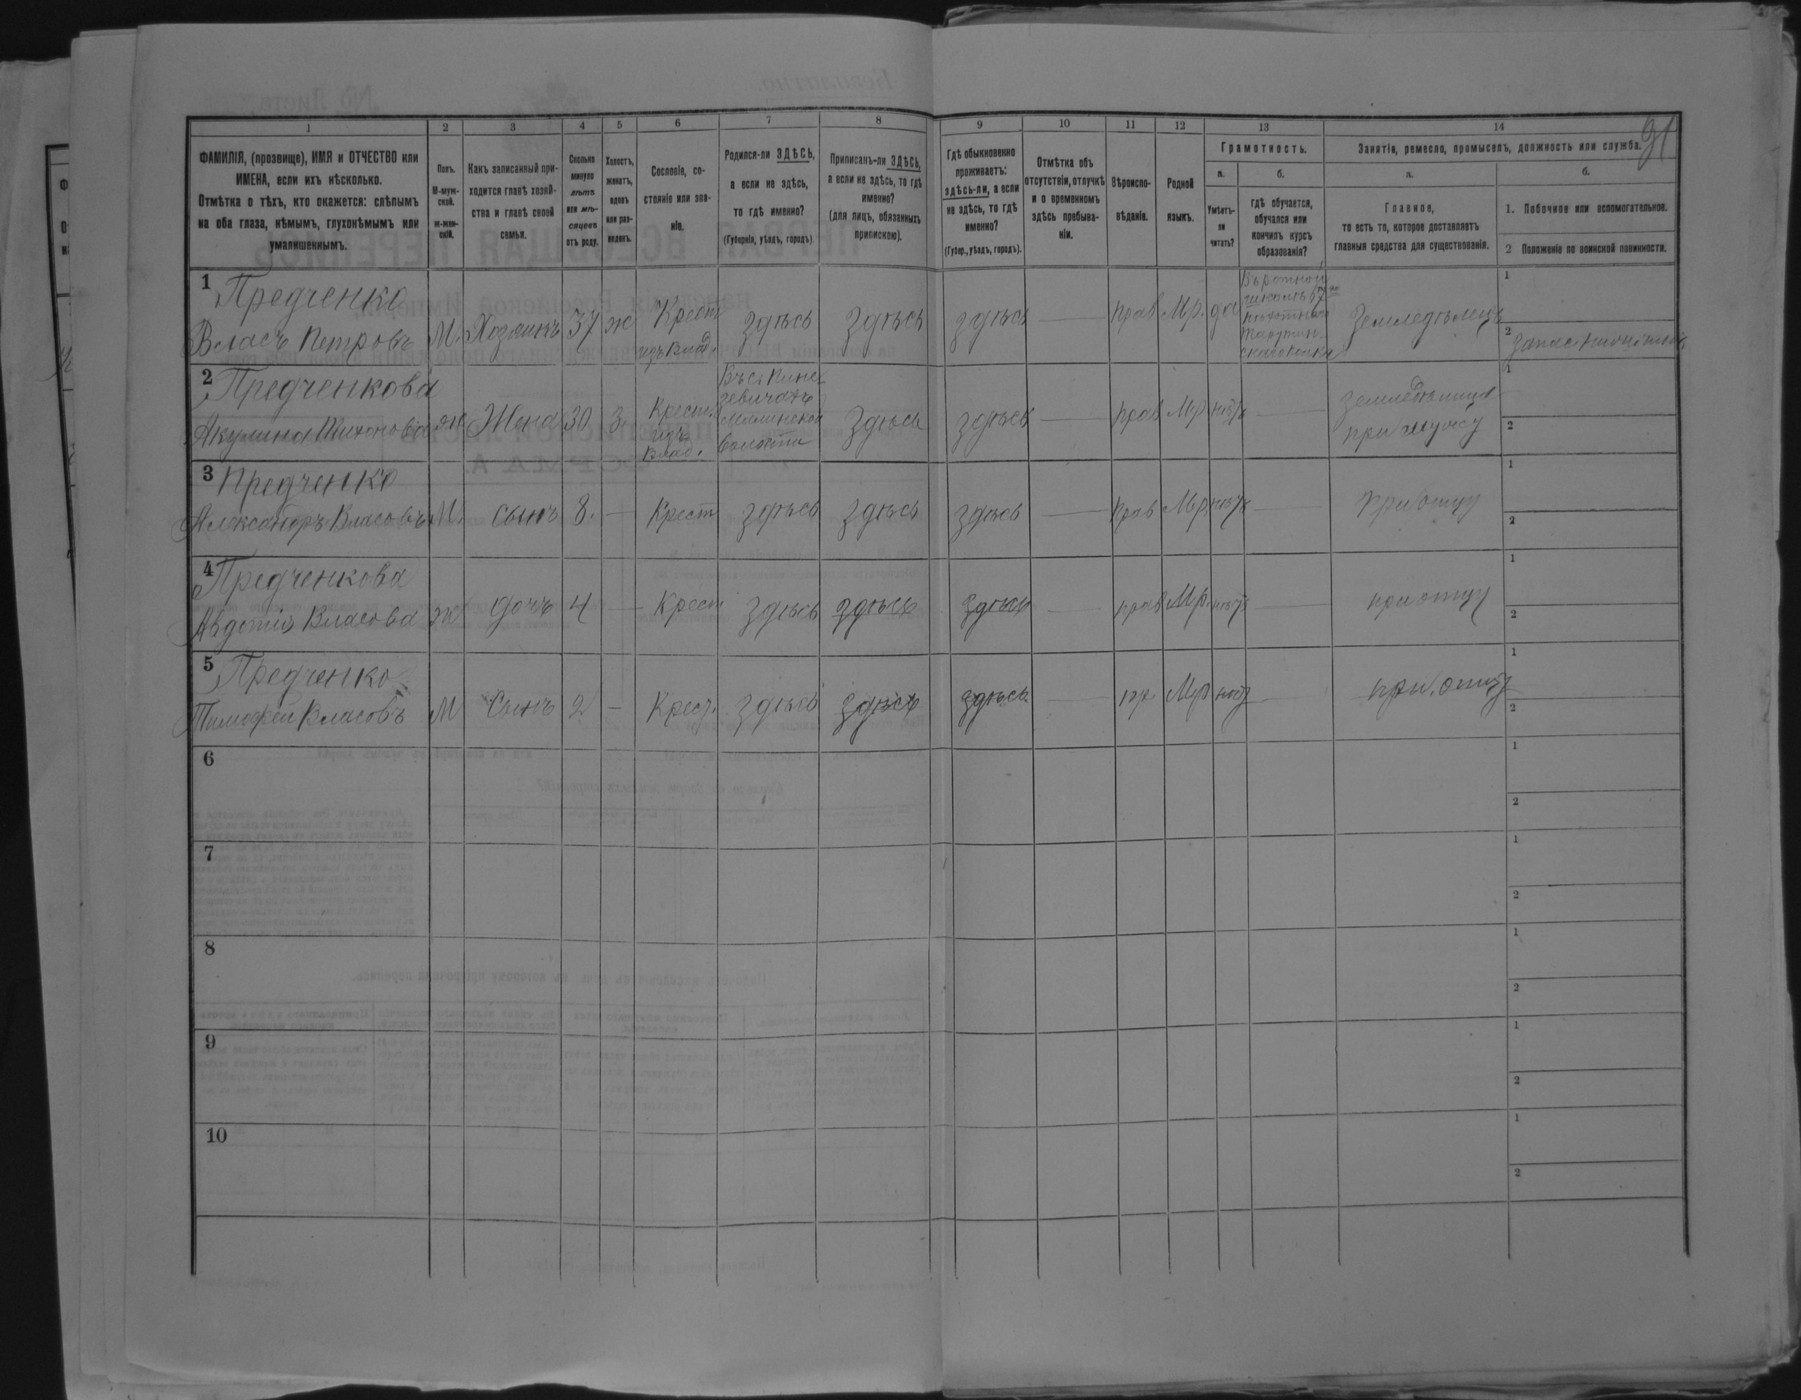 91
1 2 3 4 5 6 7 8 9 10 11 12 13 14
ФАМИЛІЯ, (прозвище), ИМЯ и ОТЧЕСТВО или
ИМЕНА, если ихъ нѣсколько.
Отмѣтка о тѣхъ, кто окажется: слѣпымъ
на оба глаза, нѣмымъ, глухонѣмымъ или
умалишеннымъ.
Полъ.
М-муж-
ской.
ж-жен-
скій.
Какъ записанный при-
ходится главѣ хозяй-
ства и главѣ своей
семьи.
Сколько
минуло
лѣтъ
или мѣ-
сяцевъ
отъ роду.
Холостъ,
женатъ,
вдовъ
или раз-
веденъ.
Сословіе, со-
стояніе или зва-
ніе.
Родился-ли ЗДѢСЬ,
а если не здѣсь,
то гдѣ именно?
(Губернія, уѣздъ, городъ).
Приписанъ-ли ЗДѢСЬ,
а если не здѣсь, то гдѣ
именно?
(для лицъ, обязанныхъ
припискою).
Гдѣ обыкновенно
проживаетъ:
здѣсь-ли, а если
не здѣсь, то гдѣ
именно?
(Губер., уѣздъ, городъ).
Отмѣтка объ
отсутствіи, отлучкѣ
и о временномъ
здѣсь пребыва-
ніи.
Вѣроиспо-
вѣданіе.
Родной
языкъ.
Грамотность.
а.
Умѣетъ-
ли
читать?
б.
гдѣ обучается,
обучался или
кончилъ курсъ
образованія?
Занятія, ремесло, промыселъ, должность или служба.
а.
Главное,
то есть то, которое доставляетъ
главныя средства для существованія.
б.
1. Побочное или вспомогательное.
2 Положеніе по воинской повинности.
1 Предченко
Власъ Петровъ М. Хозяинъ 37 ж Крест изъ влад. здѣсь здѣсь здѣсь — прав Мр. да
Въ ротной
школѣ
пѣхотнаго
Тарутин-
скаго полка
Земледѣлецъ
1
2
2 Предченкова
Акулина Тихонова ж Жена 30 з. Крест. изъ влад.
здѣсь здѣсь — прав Мр. нѣтъ —
земледѣлица
при мужу
1
2
3 Предченко
Александръ Власовъ М. сынъ 8. — Крест здѣсь здѣсь здѣсь — прав Мр нѣтъ — при отцу
1
2
4 Предченкова
Авдотія Власова ж дочь 4 — Крест здѣсь здѣсь здѣсь — прав Мр. нѣтъ — при отцу
1
2
5 Предченко
Тимофей Власовъ М Сынъ 2 — Крест. здѣсь здѣсь здѣсь — пр. Мр нѣтъ — при отцу
1
2
6
1
2
7
1
2
8
1
2
9
1
2
10
1
2